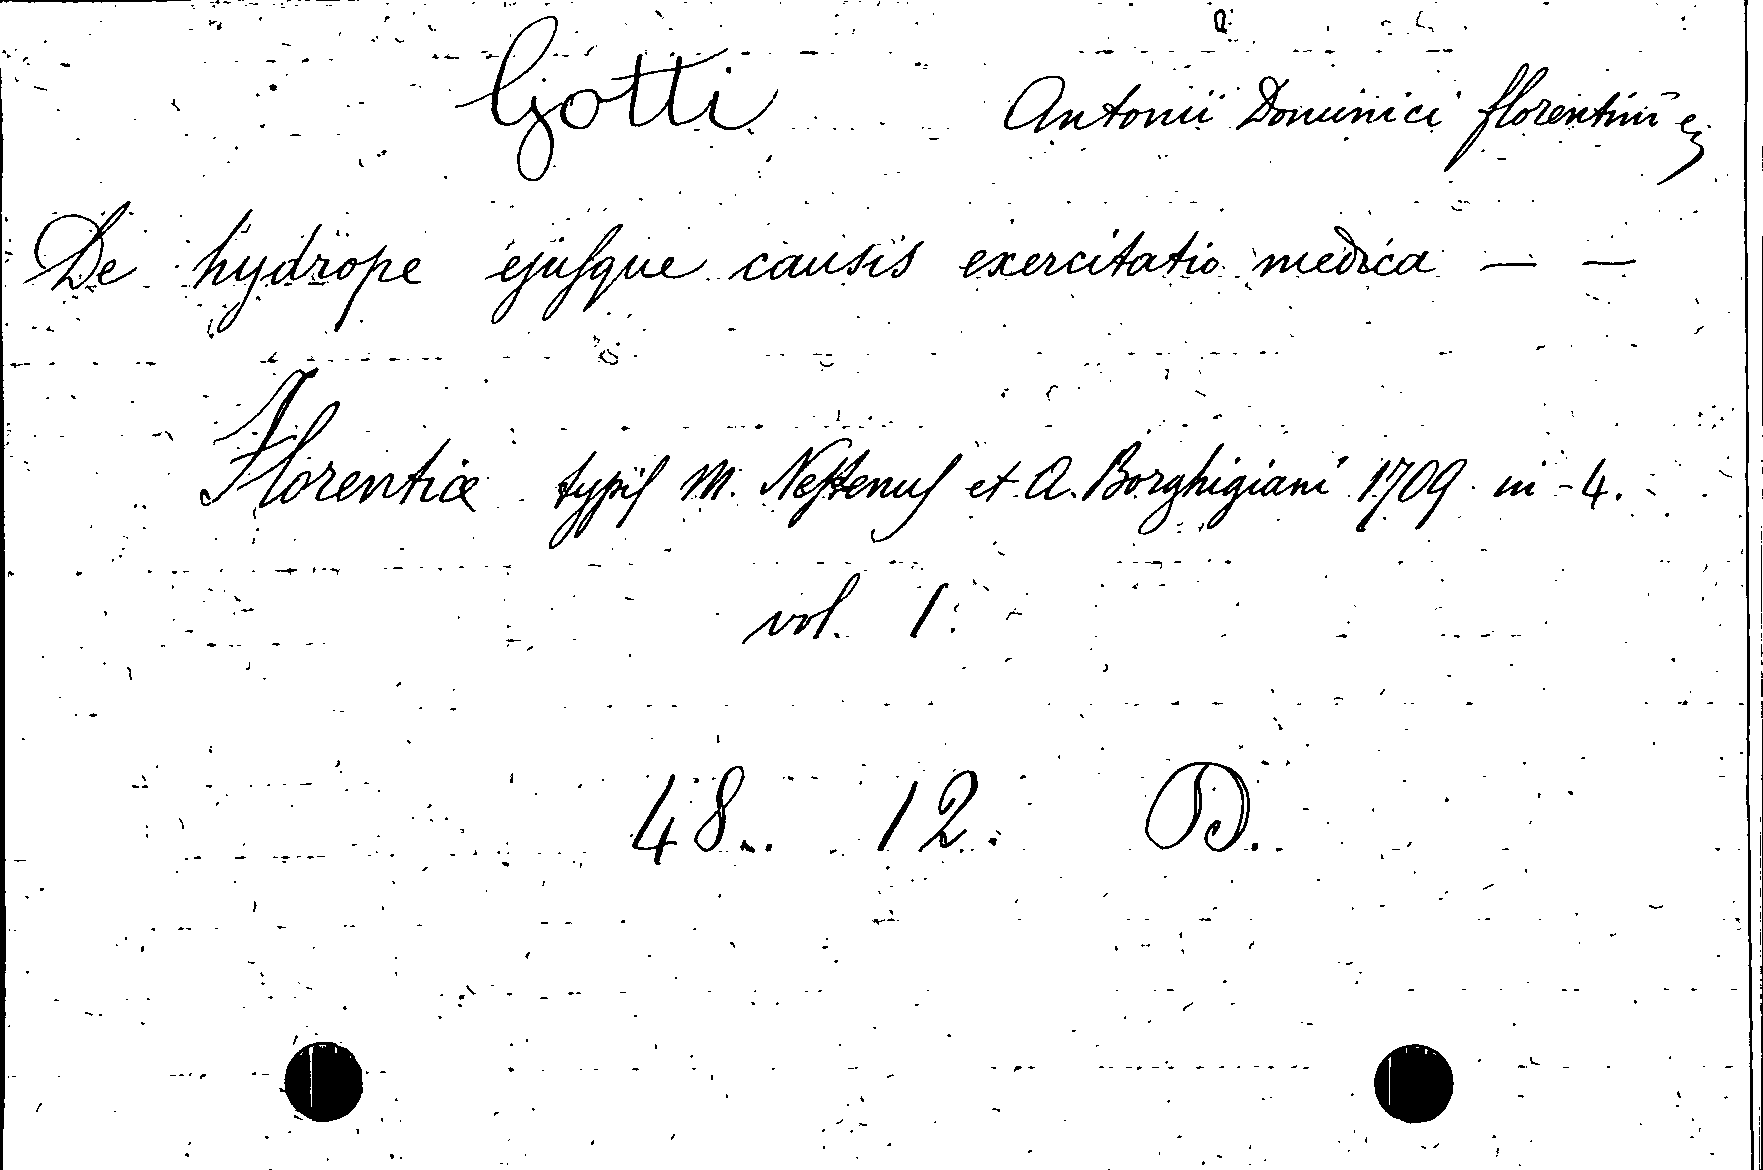 Gotti Antonii Dominici florentini
De hydrope ejusque causis exercitatio medica — —
Florentiæ typis M. Nestenus et A. Borghigiani 1709 in-4.
vol. 1.
48. 12. D.